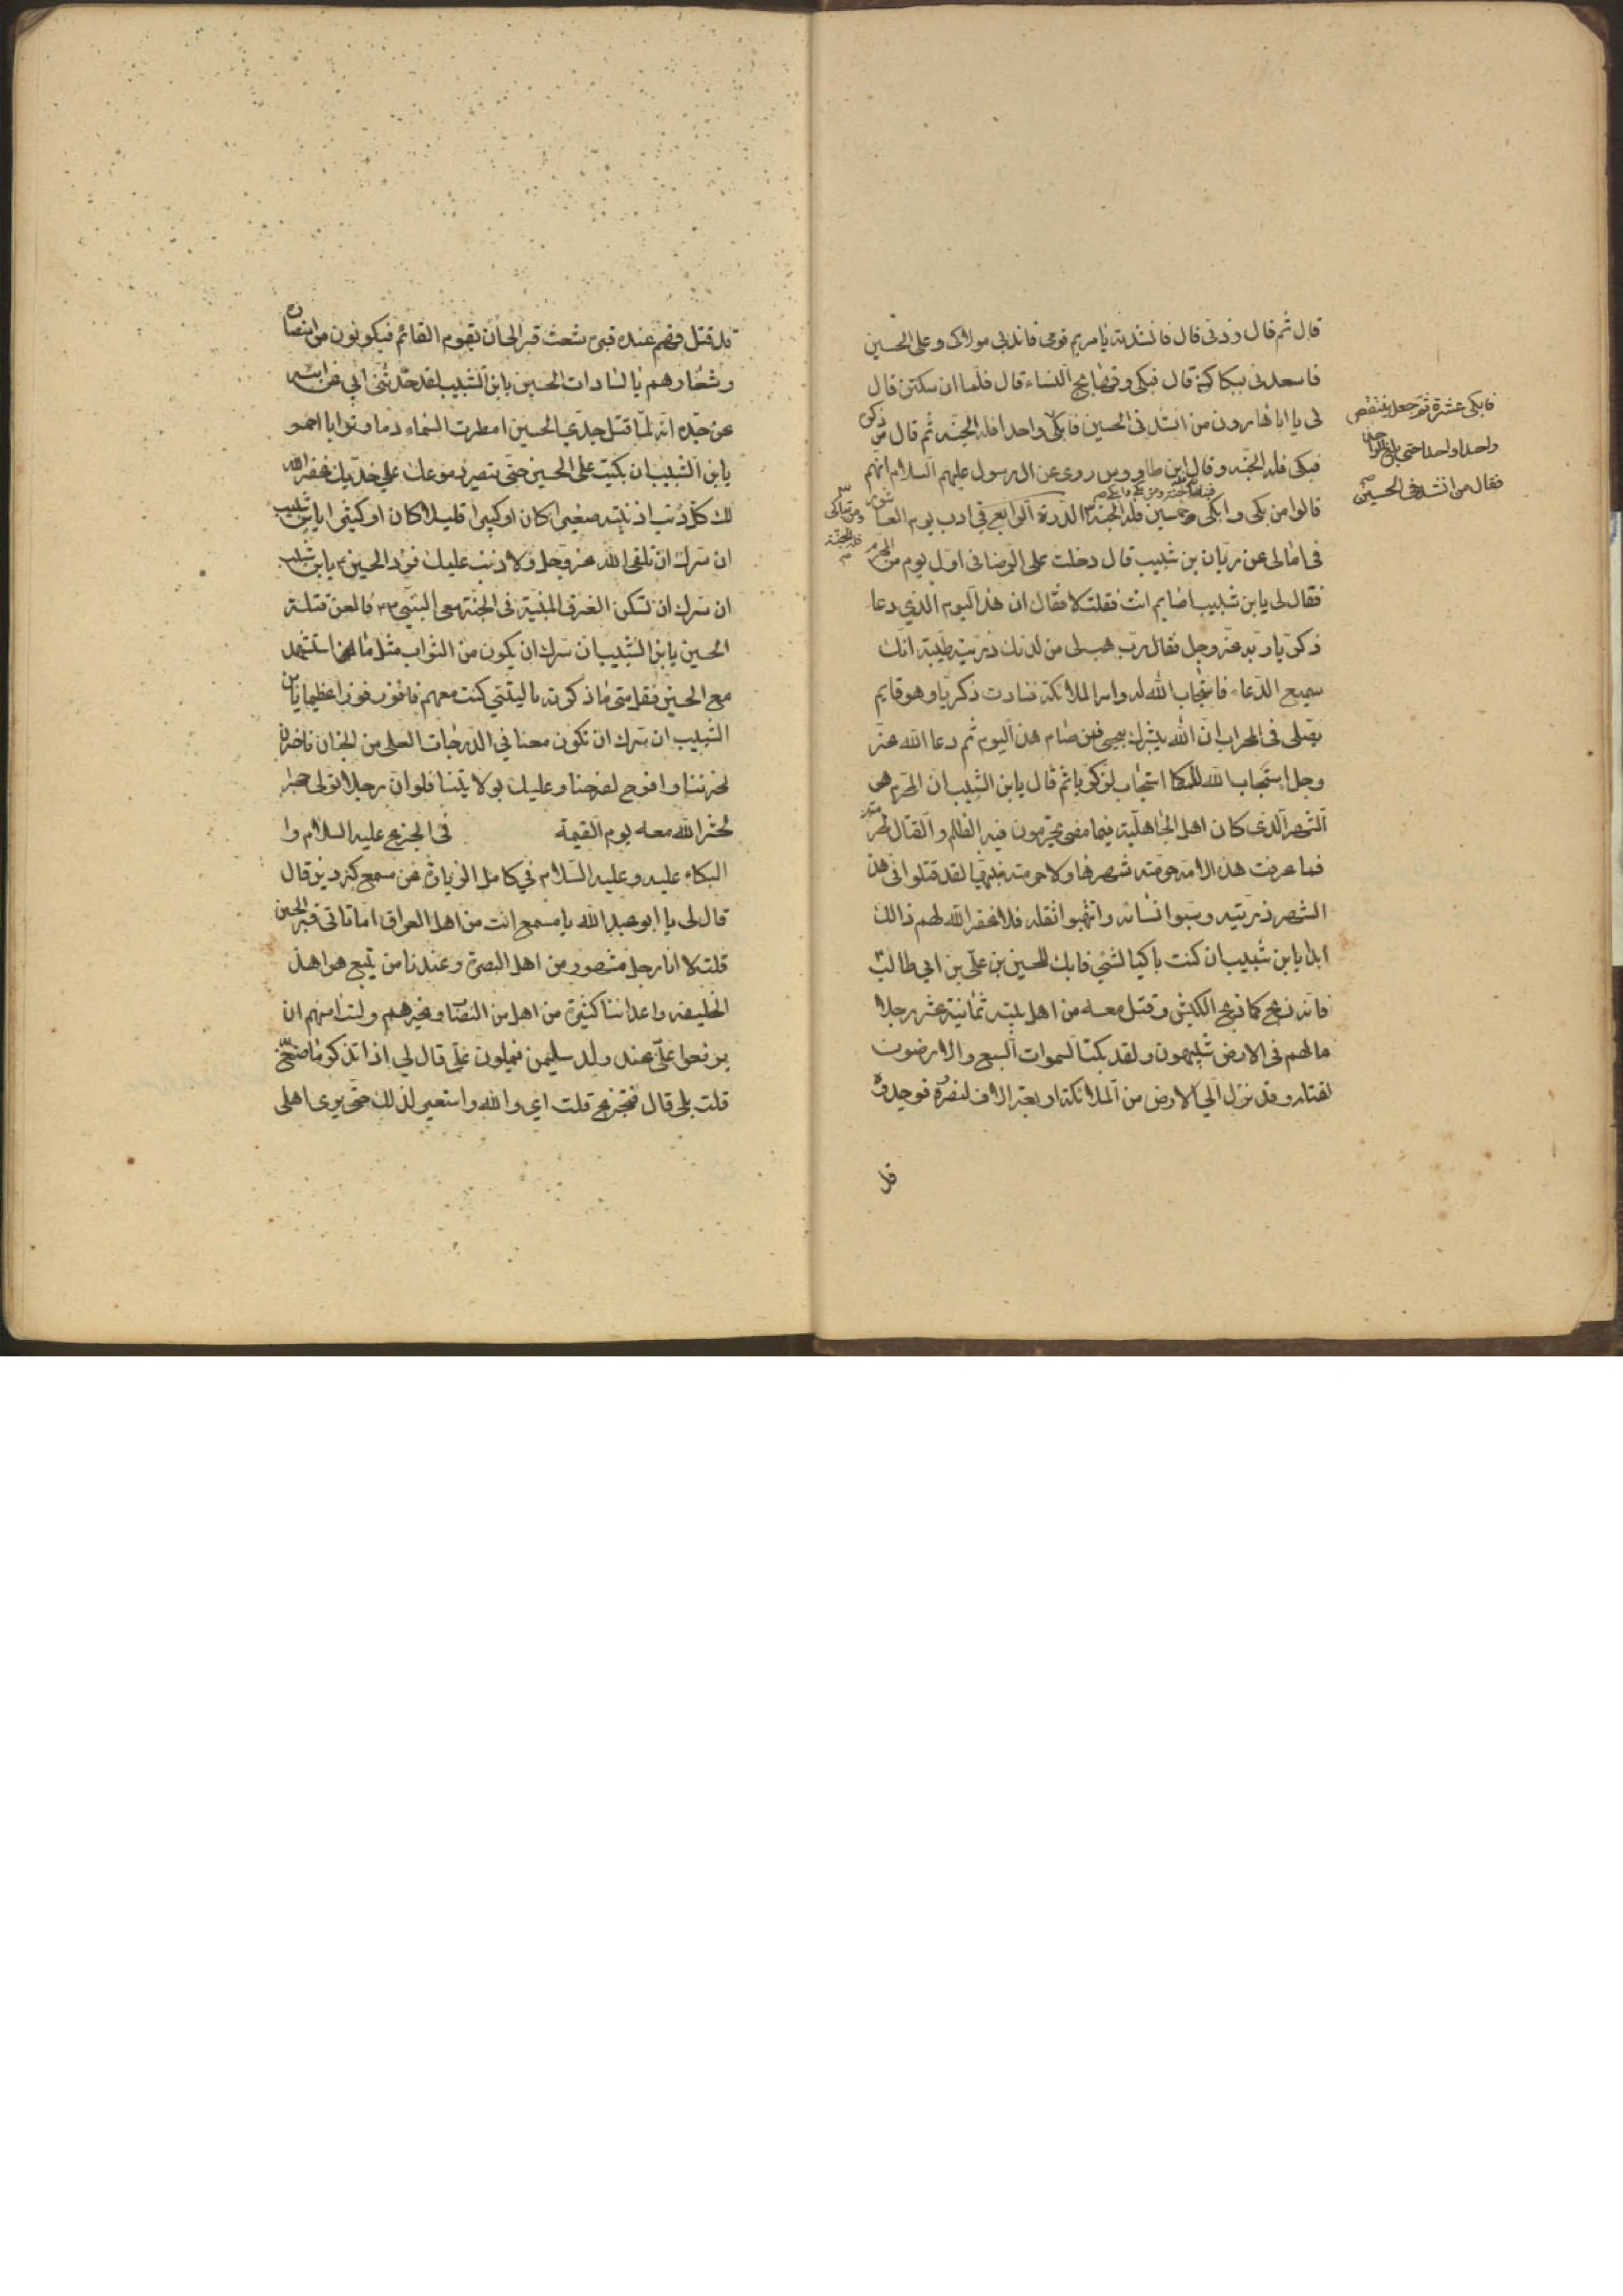 قال ثم قال زدنى قال فانشدته يا مريم قومى فاندبى مولاك وعلى الحسين
فاسعدى ببكاك قال فبكى وتهايج النساء قال فلما ان سكتن قال
لى يا ابا هارون من انشد فى الحسين فابكى واحدا فله الجنه ثم قال من ذكره
فبكى فله الجنه وقال ابن طاووس روى عن ال رسول عليهم السلام انهم
قالوا من بكى وابكى خمسين فله الجنة الدرة الرابع فى ادب يوم العاشور
فى امالى عن ريان بن شبيب قال دخلت على الرضا فى اول يوم من المحرم
فقال لى يابن شبيب اصايم انت فقلت لا فقال ان هذا اليوم الذي دعا
ذكريا ربه عز وجل فقال رب هب لى من لدنك ذرية طيبة انك
سميع الدعاء فاستجاب الله له وامر الملائكة فنادت ذكريا وهو قايم
يصلى فى المحراب ان الله يبشرك بيحيى فمن صام هذا اليوم ثم دعا الله عز
وجل استجاب الله له كما استجاب لزكريا ثم قال يابن الشبيب ان المحرم هو
الشهر الذى كان اهل الجاهلية فيما مضى يحرمون فيه الظلم والقتال لحرمته
فما عرفت هذه الامة حرمته شهرها ولا حرمته نبيها لقد قتلوا فى هذا
الشهر ذريته وسبوا نسائه وانتهبوا ثقله فلا غفر الله لهم ذالك
ابدا يابن شبيب ان كنت باكيا لشئ فابك للحسين بن على بن ابي طالب
فانه ذبح كما ذبح الكبش وقتل معه من اهل بيته ثمانية عشر رجلا
مالهم فى الارض شبيهون ولقد بكت السموات السبع والارضون
لقتله وقد نزل الى الارض من الملائكة اربعة الاف لنصره فوجدوه
قد
فابكى عشرة ثم جعل ينتقص
واحدا واحدا حتى بلغ الواحد
فقال من انشد فى الحسين
ومن تباكى
فله الجنة
قد قتل فهم عند قبره شعث غبر الى ان يقوم القائم فيكونون من انصاره
وشعارهم يا لثارات الحسين يابن الشبيب لقد حدثنى ابي عن ابيه
عن جده انه لما قتل جدي الحسين امطرت السماء دما وترابا احمر
يابن الشبيب ان بكيت على الحسين حتى تصير دموعك على خديك غفر الله
لك كل ذنب اذنبته صغيرا كان او كبيرا قليلا كان او كثيرا يابن شبيب
ان سرك ان تلقى الله عز وجل ولا ذنب عليك فزر الحسين يابن شبيب
ان سرك ان تسكن الغرف المبنية فى الجنة مع النبي فالعن قتلة
الحسين يابن الشبيب ان سرك ان يكون من الثواب مثل ما لمن استشهد
مع الحسين فقل متى ما ذكرته يا ليتنى كنت معهم فافوز فوزا عظيما يابن
الشبيب ان سرك ان تكون معنا في الدرجات العلى من الجنان فاحزن
لحزننا وافرح لفرحنا وعليك بولايتنا فلو ان رجلا تولى حجرا
لحشر الله معه يوم القيمة فى الجزع عليه السلام وا
البكاء عليه وعليه السلام في كامل الزيارة عن مسمع كردين قال
قال لى يا ابو عبد الله يا مسمع انت من اهل العراق اما تاتى قبر الحسين
قلت لا انا رجل مشهور من اهل البصرة وعندنا من يتبع هوا هذا
الخليفه واعدائنا كثيرة من اهل من النصاب وغيرهم ولست امنهم ان
يرفعوا على عند ولد سليمن فيملون على قال لي افما تذكر ما صنع
قلت بلى قال فتجزع قلت اي والله واستعبر لذلك حتى يرى اهلى